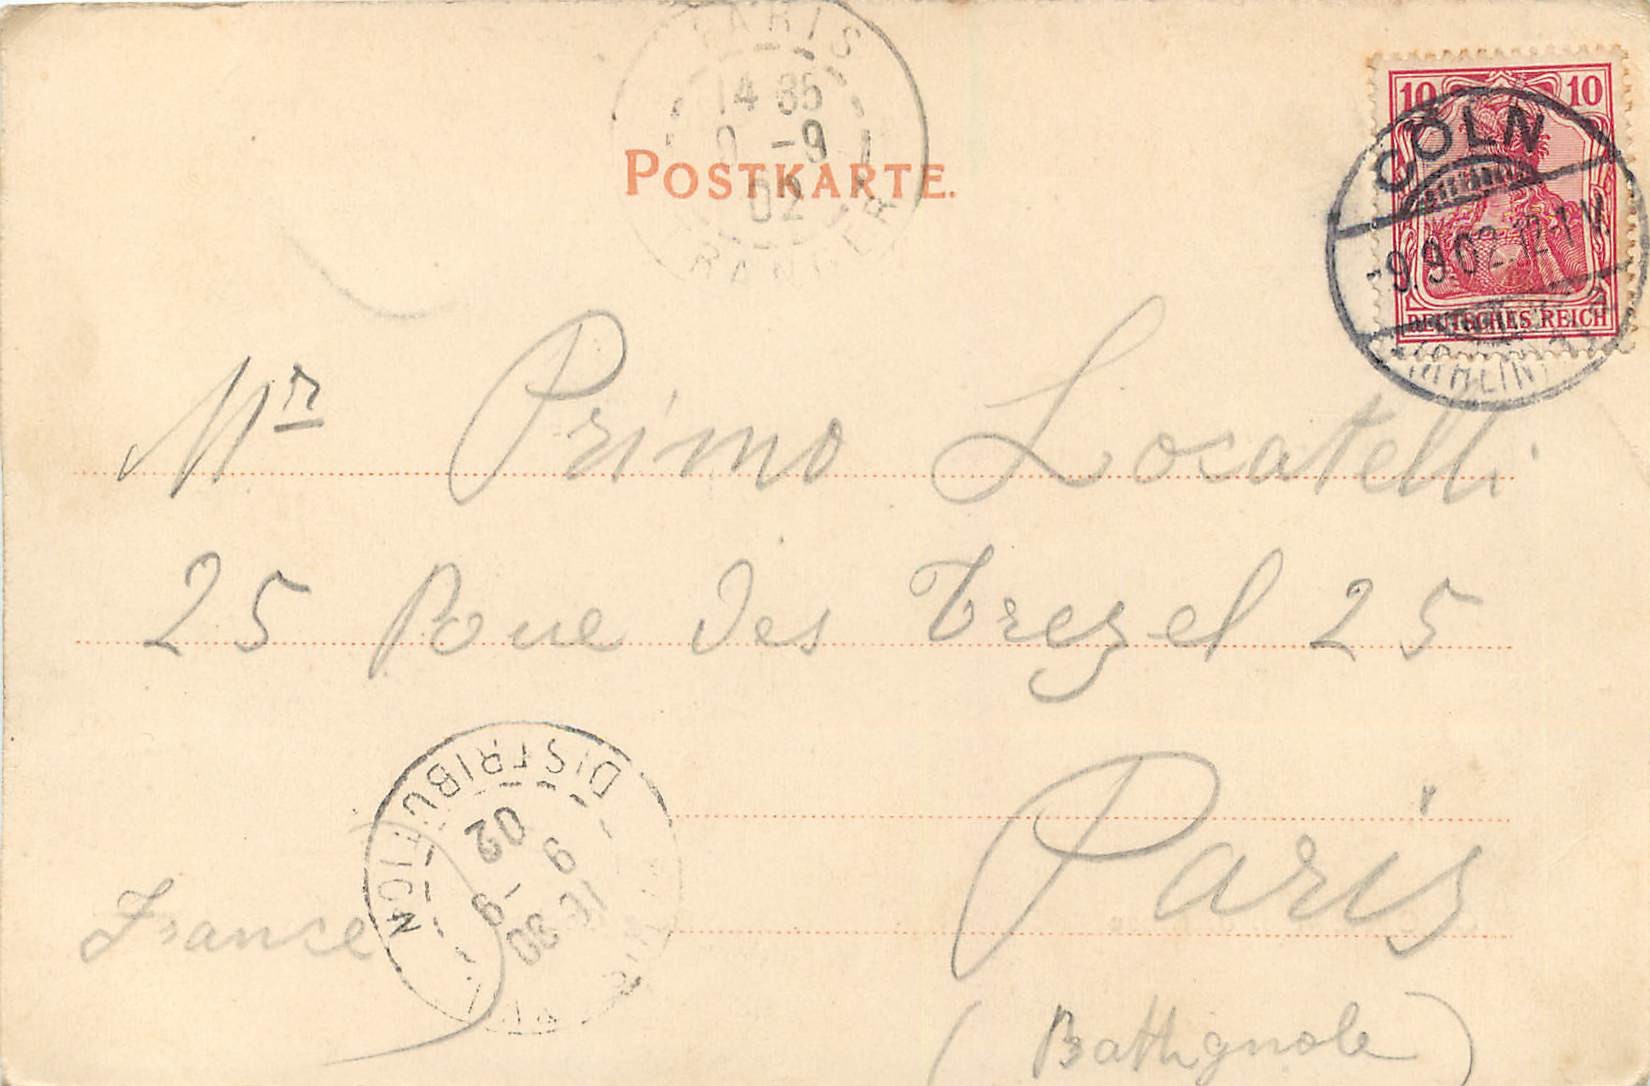 PARIS
14 35
9 -9
02
ETRANGER
POSTKARTE.
10 10
DEUTSCHES REICH
CÖLN
-9.9.02.12-1V.
(RHEIN)
Mr Primo Locatelli
25 Rue des Trezel 25
Paris
France
(Battignole)
DISTRIBUTION
02
9 -9
16 30